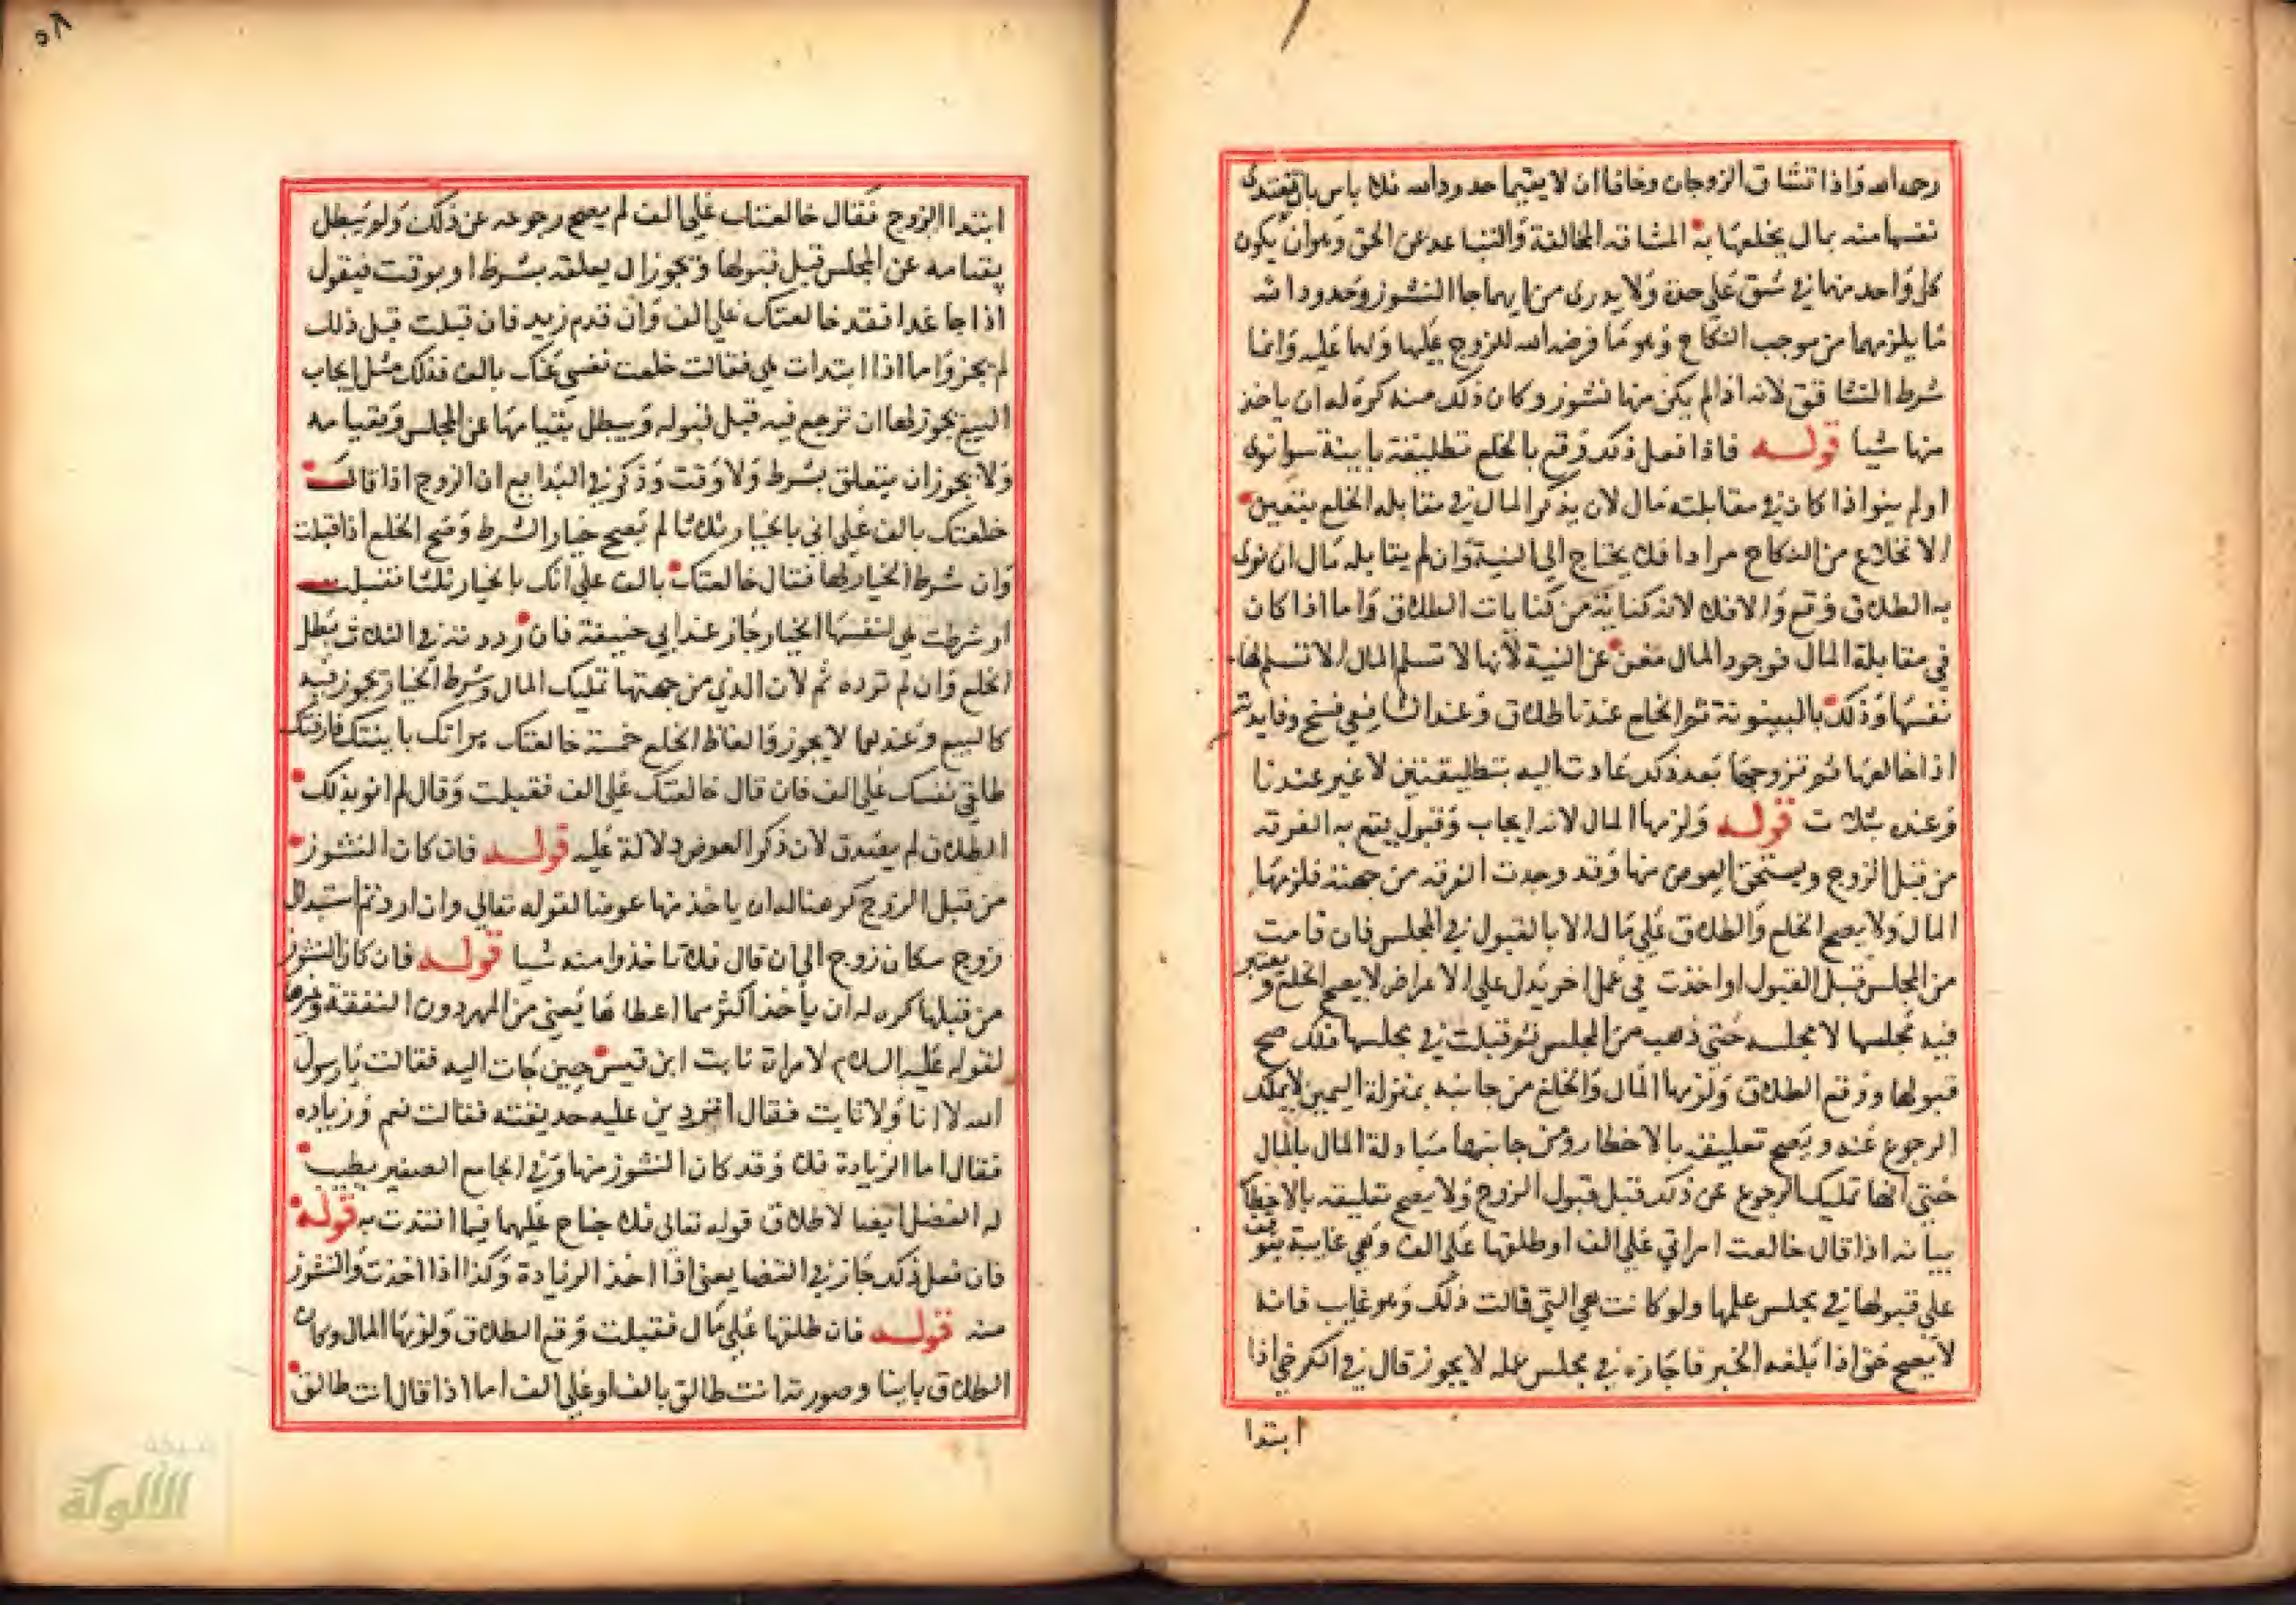 رحمه الله واذا تشاق الزوجان وخافا ان لا يقيما حدود الله فلا باس بان تفتدى
نفسها منه بمال يخلعها به المشاقه المخالفة والتباعد عن الحق وهو ان يكون
كل واحد منهما في شق على حدة ولا يدرى من ايهما جا النشوز وحدود الله
ما يلزمهما من موجب النكاح وهو ما فرضه الله للزوج عليها ولها عليه وانما
شرط التشاقق لانه اذا لم يكن منها نشوز وكان ذلك منه كره له ان ياخذ
منها شيا قوله فاذا فعل ذلك وقع بالخلع تطليقة باينة سوا نوى
او لم ينو اذا كان في مقابلته مال لان بذكر المال في مقابله الخلع يتعين
الانخلاع من النكاح مرادا فلا يحتاج الى النية وان لم يقابله مال ان نوى
به الطلاق وقع والا فلا لانه كناية من كنايات الطلاق واما اذا كان
في مقابلة المال فوجود المال مغن عن النية لانها لا تسلم المال الا لتسلم لها
نفسها وذلك بالبينونة ثم الخلع عندنا طلاق وعند الشافعي فسخ وفايدته
اذا خالعها ثم تزوجها بعد ذلك عادت اليه بتطليقتين لا غير عندنا
وعنده بثلاث قوله ولزمها المال لانه ايجاب وقبول يقع به الفرقه
من قبل الزوج ويستحق العوض منها وقد وجدت الفرقه من جهته فلزمها
المال ولا يصح الخلع والطلاق على مال الا بالقبول في المجلس فان قامت
من المجلس قبل القبول او اخذت في عمل اخر يدل على الاعراض لا يصح الخلع ويعتبر
فيه مجلسها لا مجلسه حتى ذهب من المجلس ثم قبلت في مجلسها ذلك صح
قبولها ووقع الطلاق ولزمها المال والخلع من جانبه بمنزلة اليمين لا يملك
الرجوع عنه ويصح تعليقه بالاخطار ومن جانبها مبادلة المال بالمال
حتى انها تملك الرجوع عن ذلك قبل قبول الزوج ولا يصح تعليقه بالاخطار
بيانه اذا قال خالعت امراتي على الف او طلقتها على الف وهي غايبة يتوقف
على قبولها في مجلس علمها ولو كانت هي التي قالت ذلك وهو غايب فانه
لا يصح حتى اذا بلغه الخبر فاجازه في مجلس علمه لا يجوز قال في الكرخي اذا
ابتدا
٥٨
ابتدا الزوج فقال خالعتك على الف لم يصح رجوعه عن ذلك ولو يبطل
بقيامه عن المجلس قبل قبولها ويجوز ان يعلقه بشرط او بوقت فيقول
اذا جا غدا فقد خالعتك على الف وان قدم زيد فان قبلت قبل ذلك
لم يجز واما اذا ابتدات هي فقالت خلعت نفسي عنك بالف فذلك مثل ايجاب
البيع يجوز لها ان ترجع فيه قبل قبوله ويبطل بقيامها عن المجلس وبقيامه
ولا يجوز ان يتعلق بشرط ولا وقت وذكر في البدايع ان الزوج اذا قال
خلعتك بالف على اني بالخيار ثلاثا لم يصح خيار الشرط وصح الخلع اذا قبلت
وان شرط الخيار لها فقال خالعتك بالف على انك بالخيار ثلثا فقبلت
او شرطت هي لنفسها الخيار جاز عند ابي حنيفة فان ردته في الثلاث بطل
الخلع وان لم ترده تم لان الذي من جهتها تمليك المال وشرط الخيار يجوز فيه
كالبيع وعندهما لا يجوز والفاظ الخلع خمسة خالعتك براتك باينتك فارقتك
طلقي نفسك على الف فان قال خالعتك على الف فقبلت وقال لم انو بذلك
الطلاق لم يصدق لان ذكر العوض دلالة عليه قوله فان كان النشوز
من قبل الزوج كرهنا له ان ياخذ منها عوضا لقوله تعالى وان اردتم استبدال
زوج مكان زوج الى ان قال فلا تاخذوا منه شيا قوله فان كان النشوز
من قبلها كره له ان يأخذ اكثر مما اعطاها يعني من المهر دون النفقة وغيرها
لقوله عليه السلام لامراة ثابت ابن قيس حين جات اليه فقالت يا رسول
الله لا انا ولا ثابت فقال اتردين عليه حديقته فقالت نعم وزياده
فقال اما الزيادة فلا وقد كان النشوز منها وفي الجامع الصغير يطيب
له الفضل ايضا لاطلاق قوله تعالى فلا جناح عليهما فيما افتدت به قوله
فان فعل ذلك جاز في القضا يعني اذا اخذ الزيادة وكذا اذا اخذت والنشوز
منه قوله فان طلقها على مال فقبلت وقع الطلاق ولزمها المال وكان
الطلاق باينا وصورته انت طالق بالف او على الف اما اذا قال انت طالق
شبكة
الألوكة